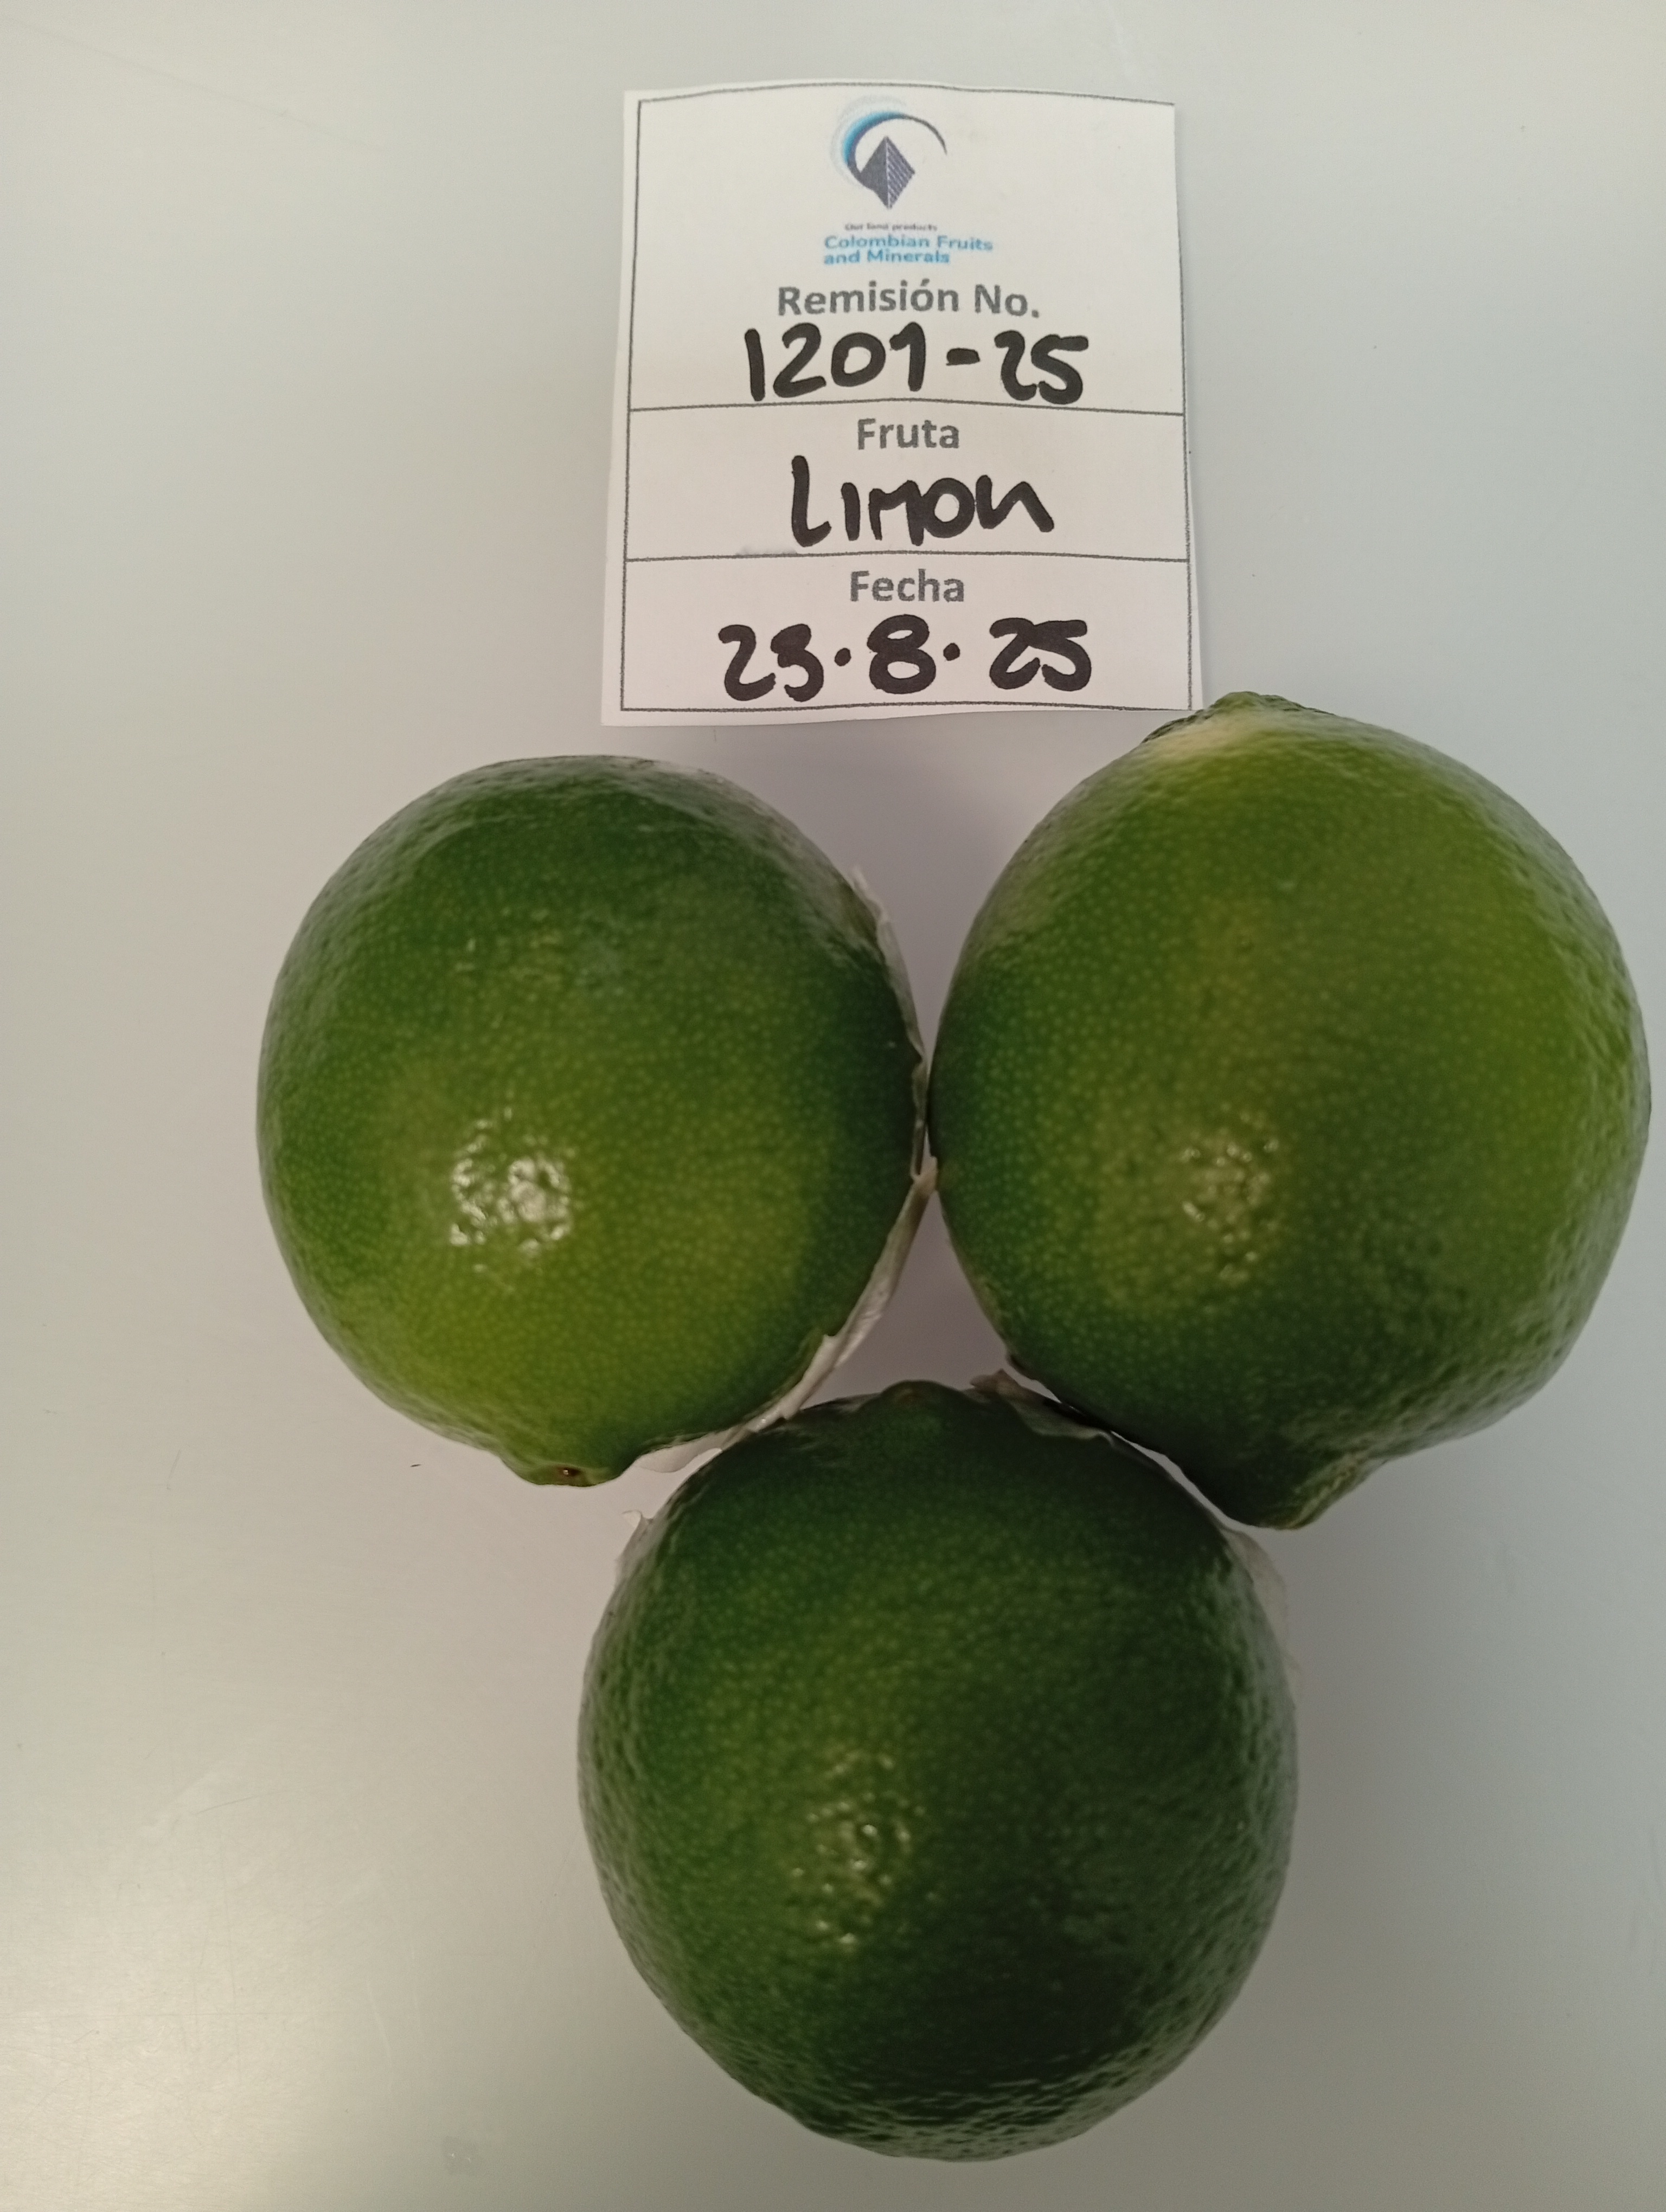 Our land products
Colombian Fruits
and Minerals
Remisión No.
1201-25
Fruta
Limon
Fecha
23.8.25